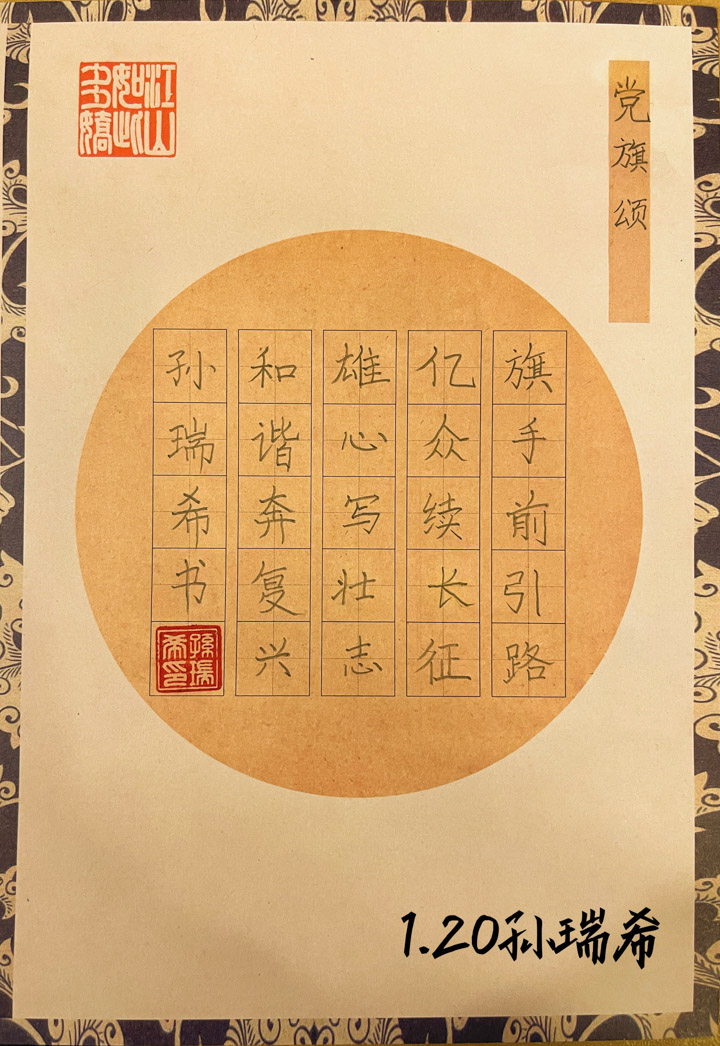 党旗颂
旗手前引路
亿众续长征
雄心写壮志
和谐奔复兴
孙瑞希书
孙瑞希印
江山如此多娇
1.20孙瑞希